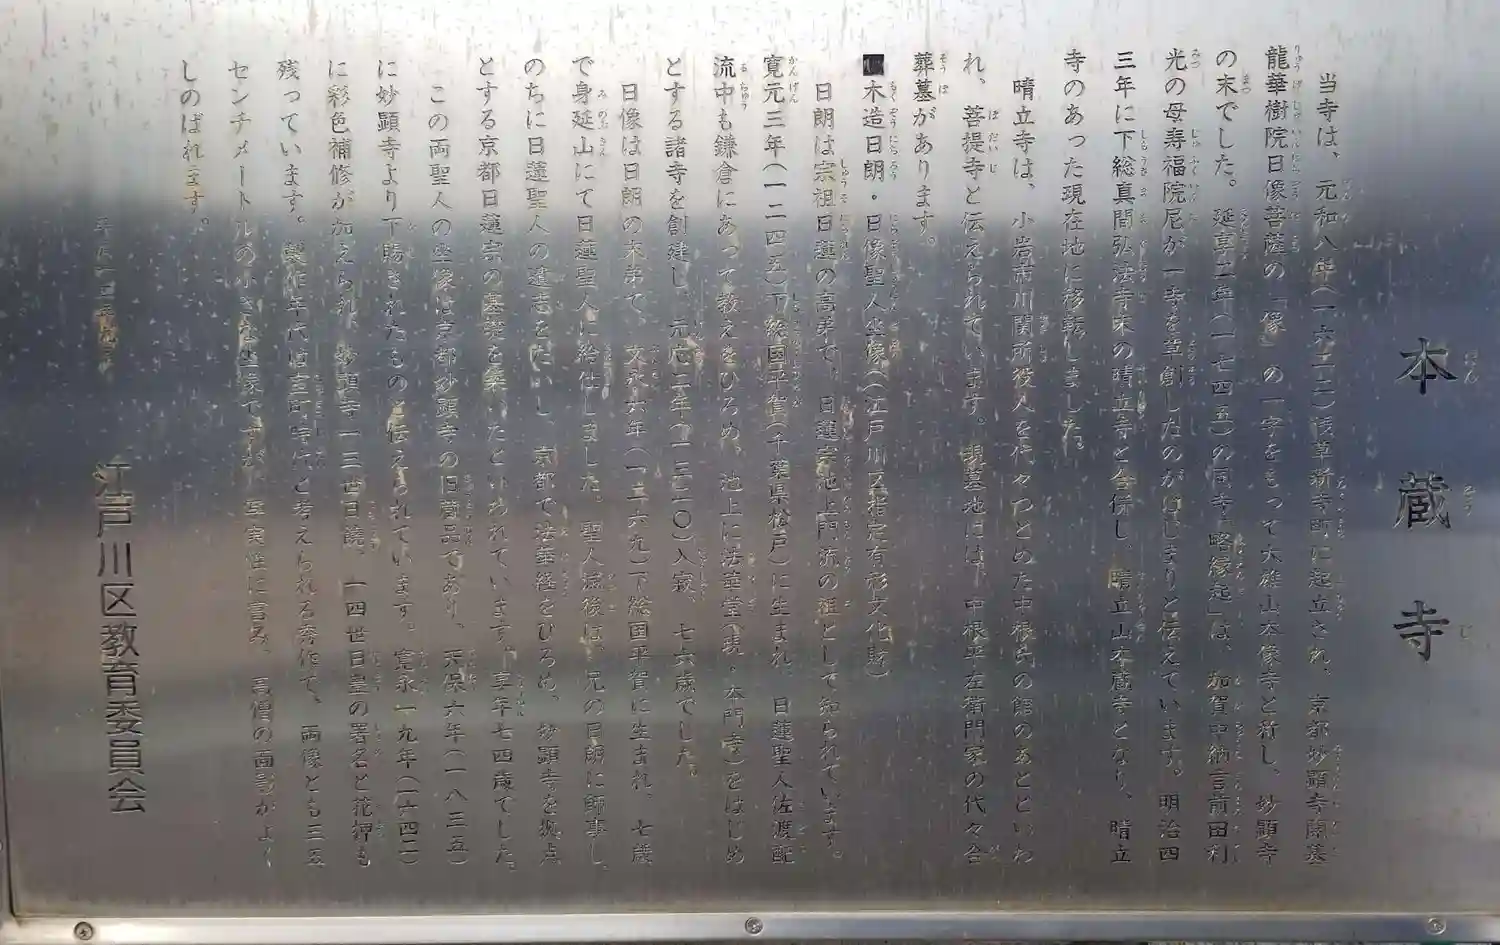 本蔵寺
当寺は、元和八年(一六二二)浅草新寺町に起立され、京都妙顕寺開基
龍華樹院日像菩薩の「像」の一字をもって大雄山本像寺と称し、妙顕寺
の末でした。延享二年(一七四五)の同寺「略縁起」は、加賀中納言前田利
光の母寿福院尼が一寺を草創したのがはじまりと伝えています。明治四
三年に下総真間弘法寺末の晴立寺と合併し、晴立山本蔵寺となり、晴立
寺のあった現在地に移転しました。
晴立寺は、小岩市川関所役人を代々つとめた中根氏の館のあとといわ
れ、菩提寺と伝えられています。現墓地には、中根平左衛門家の代々合
葬墓があります。
木造日朗・日像聖人坐像(江戸川区指定有形文化財)
日朗は宗祖日蓮の高弟で、日蓮宗池上門流の祖として知られています。
寛元三年(一二四五)下総国平賀(千葉県松戸)に生まれ、日蓮聖人佐渡配
流中も鎌倉にあって教えをひろめ、池上に法華堂(現・本門寺)をはじめ
とする諸寺を創建し、元応二年(一三二〇)入寂、七六歳でした。
日像は日朗の末弟で、文永六年(一二六九)下総国平賀に生まれ、七歳
で身延山にて日蓮聖人に給仕しました。聖人滅後は、兄の日朗に師事し、
のちに日蓮聖人の遺志をたいし、京都で法華経をひろめ、妙顕寺を拠点
とする京都日蓮宗の基礎を築いたといわれています。享年七四歳でした。
この両聖人の坐像は京都妙顕寺の旧蔵品であり、天保六年(一八三五)
に妙顕寺より下賜されたものと伝えられています。寛永一九年(一六四二)
に彩色補修が加えられ、妙顕寺一三世日饒、一四世日豊の署名と花押も
残っています。製作年代は室町時代と考えられる秀作で、両像とも三五
センチメートルの小さな坐像ですが、写実性に富み、高僧の面影がよく
しのばれます。
江戸川区教育委員会